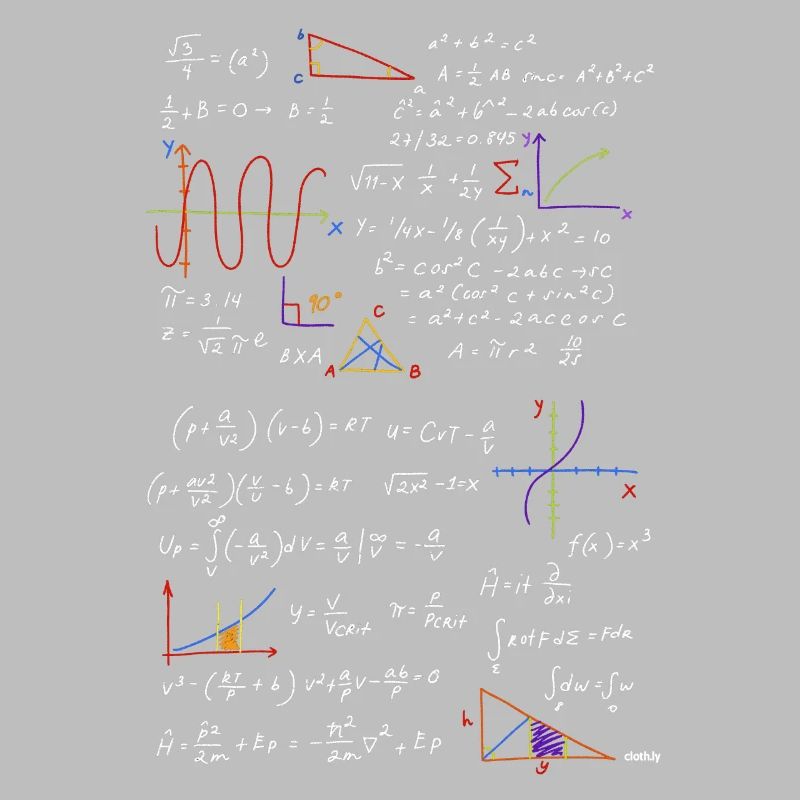 √3/4 = (a²)
b
c
a
a² + b² = c²
A = 1/2 AB sinc = A²+B²+C²
1/2 + B = 0 → B = 1/2
ĉ² = â² + b^² - 2ab cos(c)
27/32 = 0.845
y
x
y
n
x
√11-x 1/x + 1/2y Σ
y = 1/4x - 1/8 (1/xy) + x² = 10
b² = cos²C - 2abc → sc
= a² (cos² c + sin² c)
= a² + c² - 2ac cos C
π = 3.14
90°
z = 1/√2 π e
BXA
C
A
B
A = π r 2 10/25
(p + a/v²) (v-b) = RT
u = CvT - a/v
(p + av2/v²) (v/v - b) = RT
√2x² - 1 = x
y
x
Up = ∫ ∞ v (-a/v²) dv = a/v | ∞ v = -a/v
f(x) = x³
Ĥ = iħ ∂/∂xi
y = V/VCRit
π = P/PCRit
∫ε Rot F dΣ = FdR
v³ - (RT/P + b) v² + a/P v - ab/P = 0
∫ dw = ∫ w
h
y
Ĥ = p̂2/2m + Ep = -ħ²/2m ∇² + Ep
cloth.ly